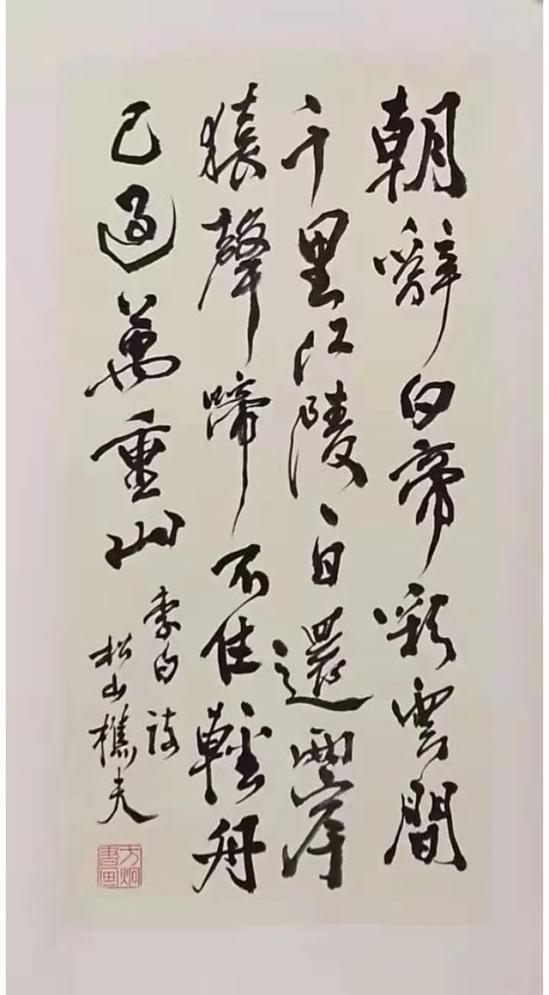 朝辭白帝彩雲間
千里江陵一日還兩岸
猿聲啼不住輕舟
已過萬重山
李白詩
松山樵夫
方炯書画